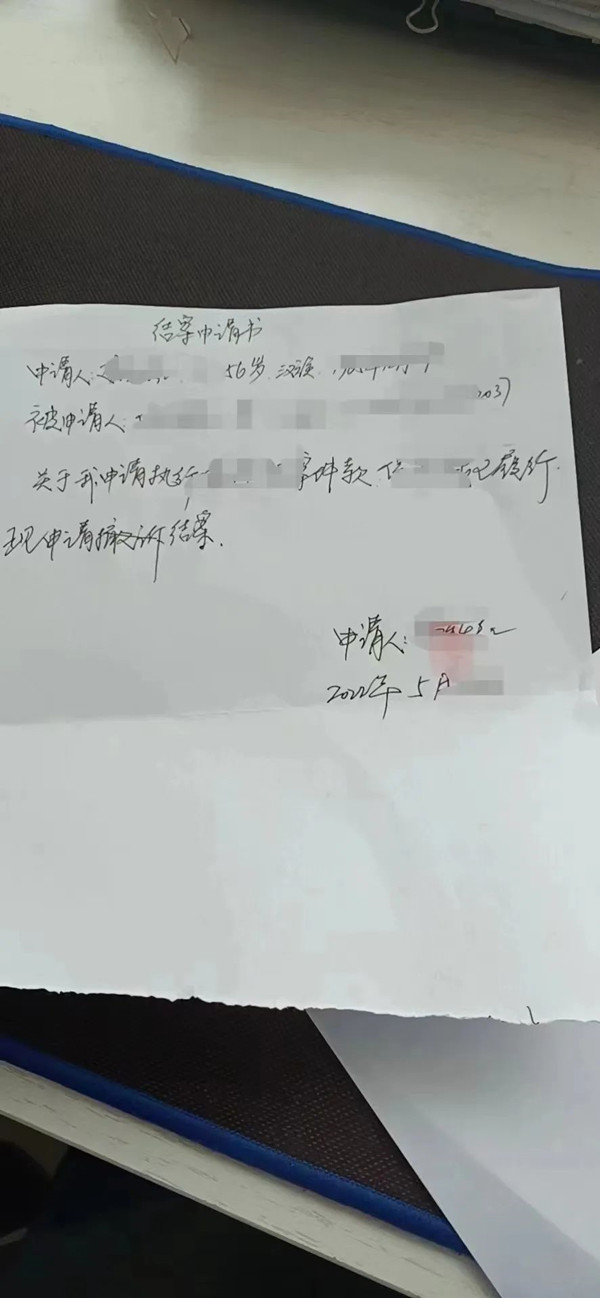 结案申请书
申请人: 56岁 汉族
被申请人:
关于我申请执行 案件款, 已履行.
现申请撤诉结案.
申请人:
2022年 5月